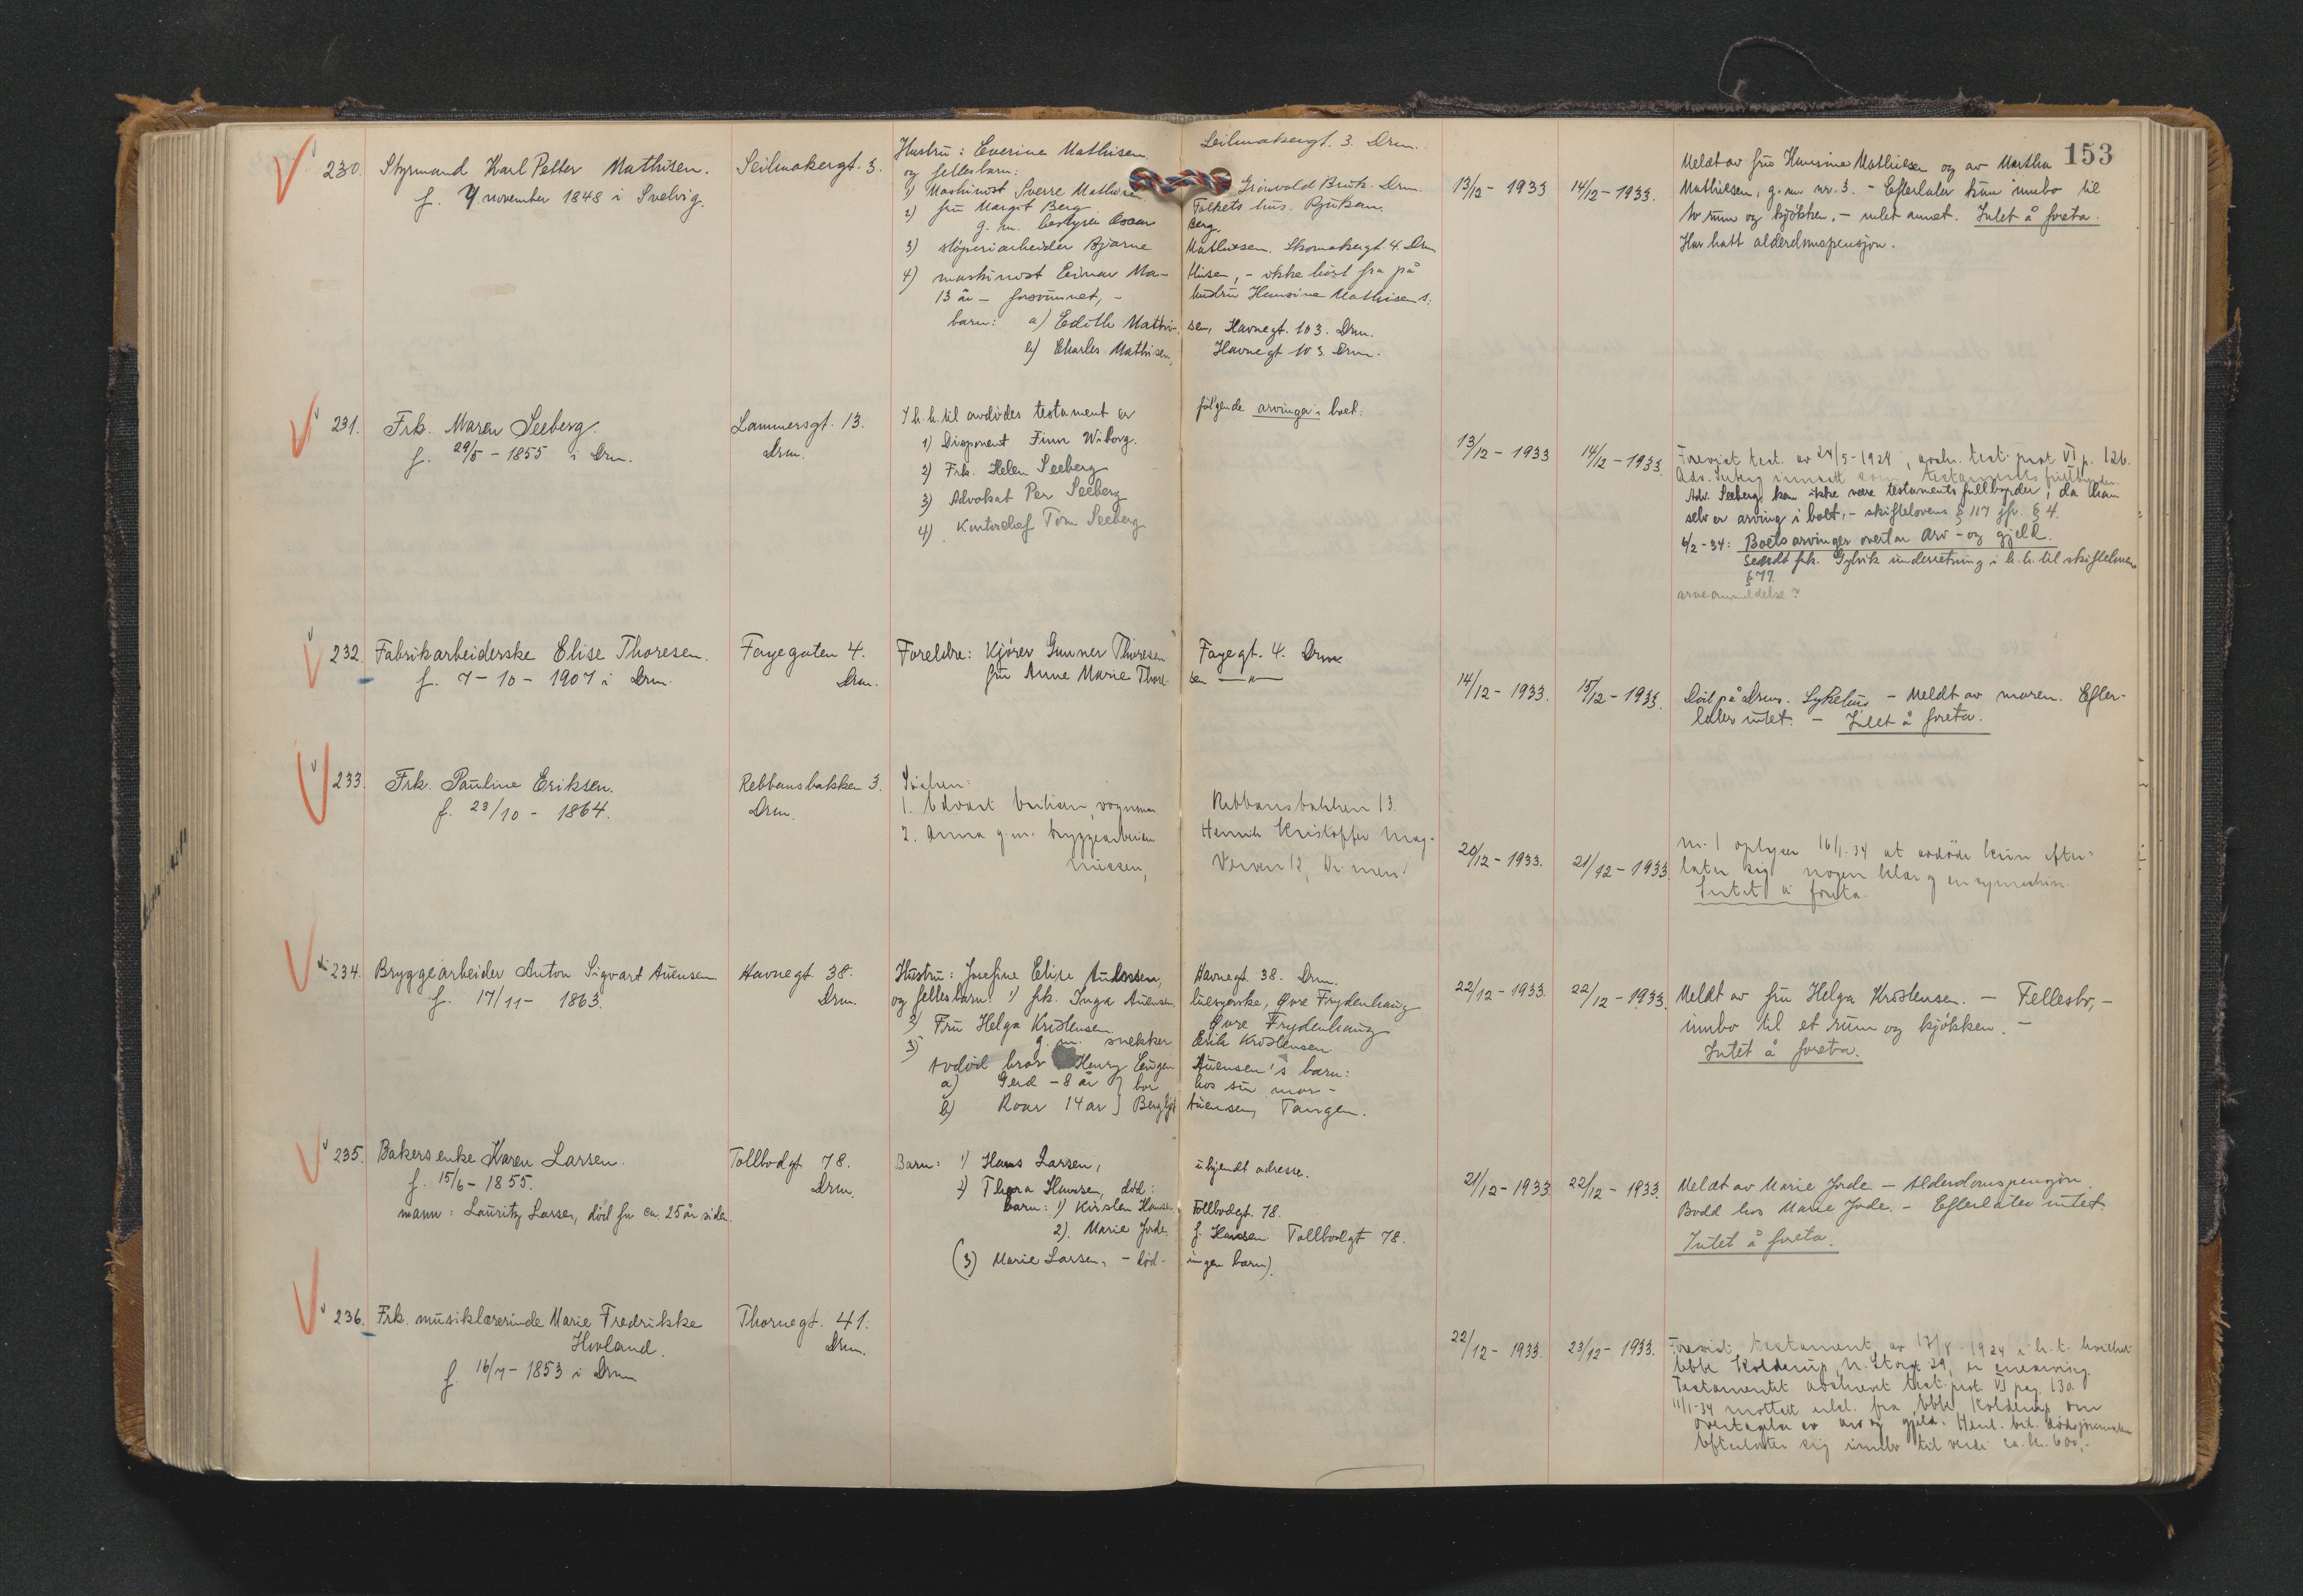 153
230. Styrmand Karl Petter Mathisen.
f. 9 november 1848 i Svelvig.
Seilmakergt. 3.
Hustru: Everine Mathisen. Seilmakergt. 3. Drm.
og fellesbarn:
1) Maskinist Sverre Mathisen Grönvold Bruk. Drm.
2) fru Margit Berg Folkets hus. Rjukan.
g. m. bestyrer Oscar Berg.
3) støperiarbeider Bjarne Mathisen. Skomakergt 4. Drm
4) maskinist Einar Ma- thisen, - ikke hört fra på
13 år - forsvunnet, - hustru Hansine Mathisen s:
barn: a) Edith Mathi- sen, Havnegt. 103. Drm.
b) Charles Mathisen, Havnegt 103. Drm.
13/12 - 1933
14/12 - 1933.
Meldt av fru Hansine Mathisen og av Martha
Mathisen, g. m. nr. 3. - Efterlater kun innbo til
to rum og kjøkken. - intet annet. Intet å foreta.
Har hatt alderdomspensjon.
231. Frk. Maren Seeberg.
f. 29/5 - 1855 i Drm.
Lammersgt. 13.
Drm.
I h. h. til avdødes testament er følgende arvinger i boet:
1) Disponent Finn Wiborg.
2) Frk. Helen Seeberg
3) Advokat Per Seeberg
4) Kontorchef Tom Seeberg
13/12 - 1933
14/12 - 1933.
Forevist test. av 24/5-1929, avskr. test. prot VI p. 126.
Adv. Seeberg innsatt som testaments fullbyrder.
Adv. Seeberg kan ikke være testaments fullbyrder, da han
selv er arving i boet, - skiftelovens § 117 jfr. § 4.
6/2 - 34: Boets arvinger overtar arv - og gjeld.
Sendt frk. underretning i h. h. til skifteloven
§ 77.
arveanmeldelse?
232. Fabrikarbeiderske Elise Thoresen.
f. 7 - 10 - 1907 i Drm.
Fayegaten 4.
Drm.
Foreldre: Kjører Gunner Thoresen Fayegt. 4. Drm
fru Anne Marie Thore- sen —„—
14/12 - 1933.
15/12 - 1933.
Död på Drms. Sykehus - Meldt av moren. Efter-
later intet. - Intet å foreta.
233. Frk. Pauline Eriksen.
f. 23/10 - 1864.
Rebbansbakken 3.
Drm.
Søsken:
1. Edvart Eriksen, vognman Rebbansbakken 13.
2. Anna g. m. bryggearbeider Henrik Kristoffer Mag-
nussen,
20/12 - 1933.
21/12 - 1933.
nr. 1 oplyser 16/1. 34 at avdøde kun efter-
later sig nogen klær og en symaskin.
Intet å foreta.
234. Bryggearbeider Anton Sigvart Auensen
f. 17/11 - 1863.
Havnegt. 38.
Drm.
Hustru: Josefine Elise Auensen, Havnegt. 38. Drm.
og fellesbarn: 1) frk. Inga Auensen Øvre Frydenhaug
2) Fru Helga Kristensen. Øvre Frydenhaug
g. m. snekker Erik Kristensen
3) avdöd bror Henry Eugen Auensen's barn:
a) Gerd - 8 år } bor hos sin mor -
b) Roar 14 år } Bergljot Auensen, Tangen.
22/12 - 1933.
22/12 - 1933.
Meldt av fru Helga Kristensen. - Fellesbo, -
innbo til et rum og kjøkken. -
Intet å foreta.
235. Bakers enke Karen Larsen.
f. 15/6 - 1855.
mann: Lauritz Larsen, död for ca. 25 år siden.
Tollbodgt. 78.
Drm.
Barn: 1) Hans Larsen, ukjendt adresse.
2) Thora Hansen, död:
barn: 1) Kirsten Hansen Tollbodgt. 78.
2). Marie Jorde f. Hansen. Tollbodgt 78.
(3) Marie Larsen, - död - ingen barn).
21/12 - 1933.
22/12 - 1933.
Meldt av Marie Jorde. - Alderdomspensjon.
Bodd hos Marie Jorde. - Efterlater intet.
Intet å foreta.
236. Frk. musiklærerinde Marie Fredrikke
Hovland.
f. 16/7 - 1853 i Drm
Thornegt. 41.
Drm.
22/12 - 1933.
23/12 - 1933.
Forevist testament av 17/8 1924 i h. t. hvilket
Kolderup, N. Storgt 29, er enearving.
Testamentet avskrevet test. prot. VI pag. 130.
11/1-34 mottatt erkl. fra Kolderup om
overtagelse av arv og gjeld.
Efterlater sig innbo til verdi ca. kr. 600,-